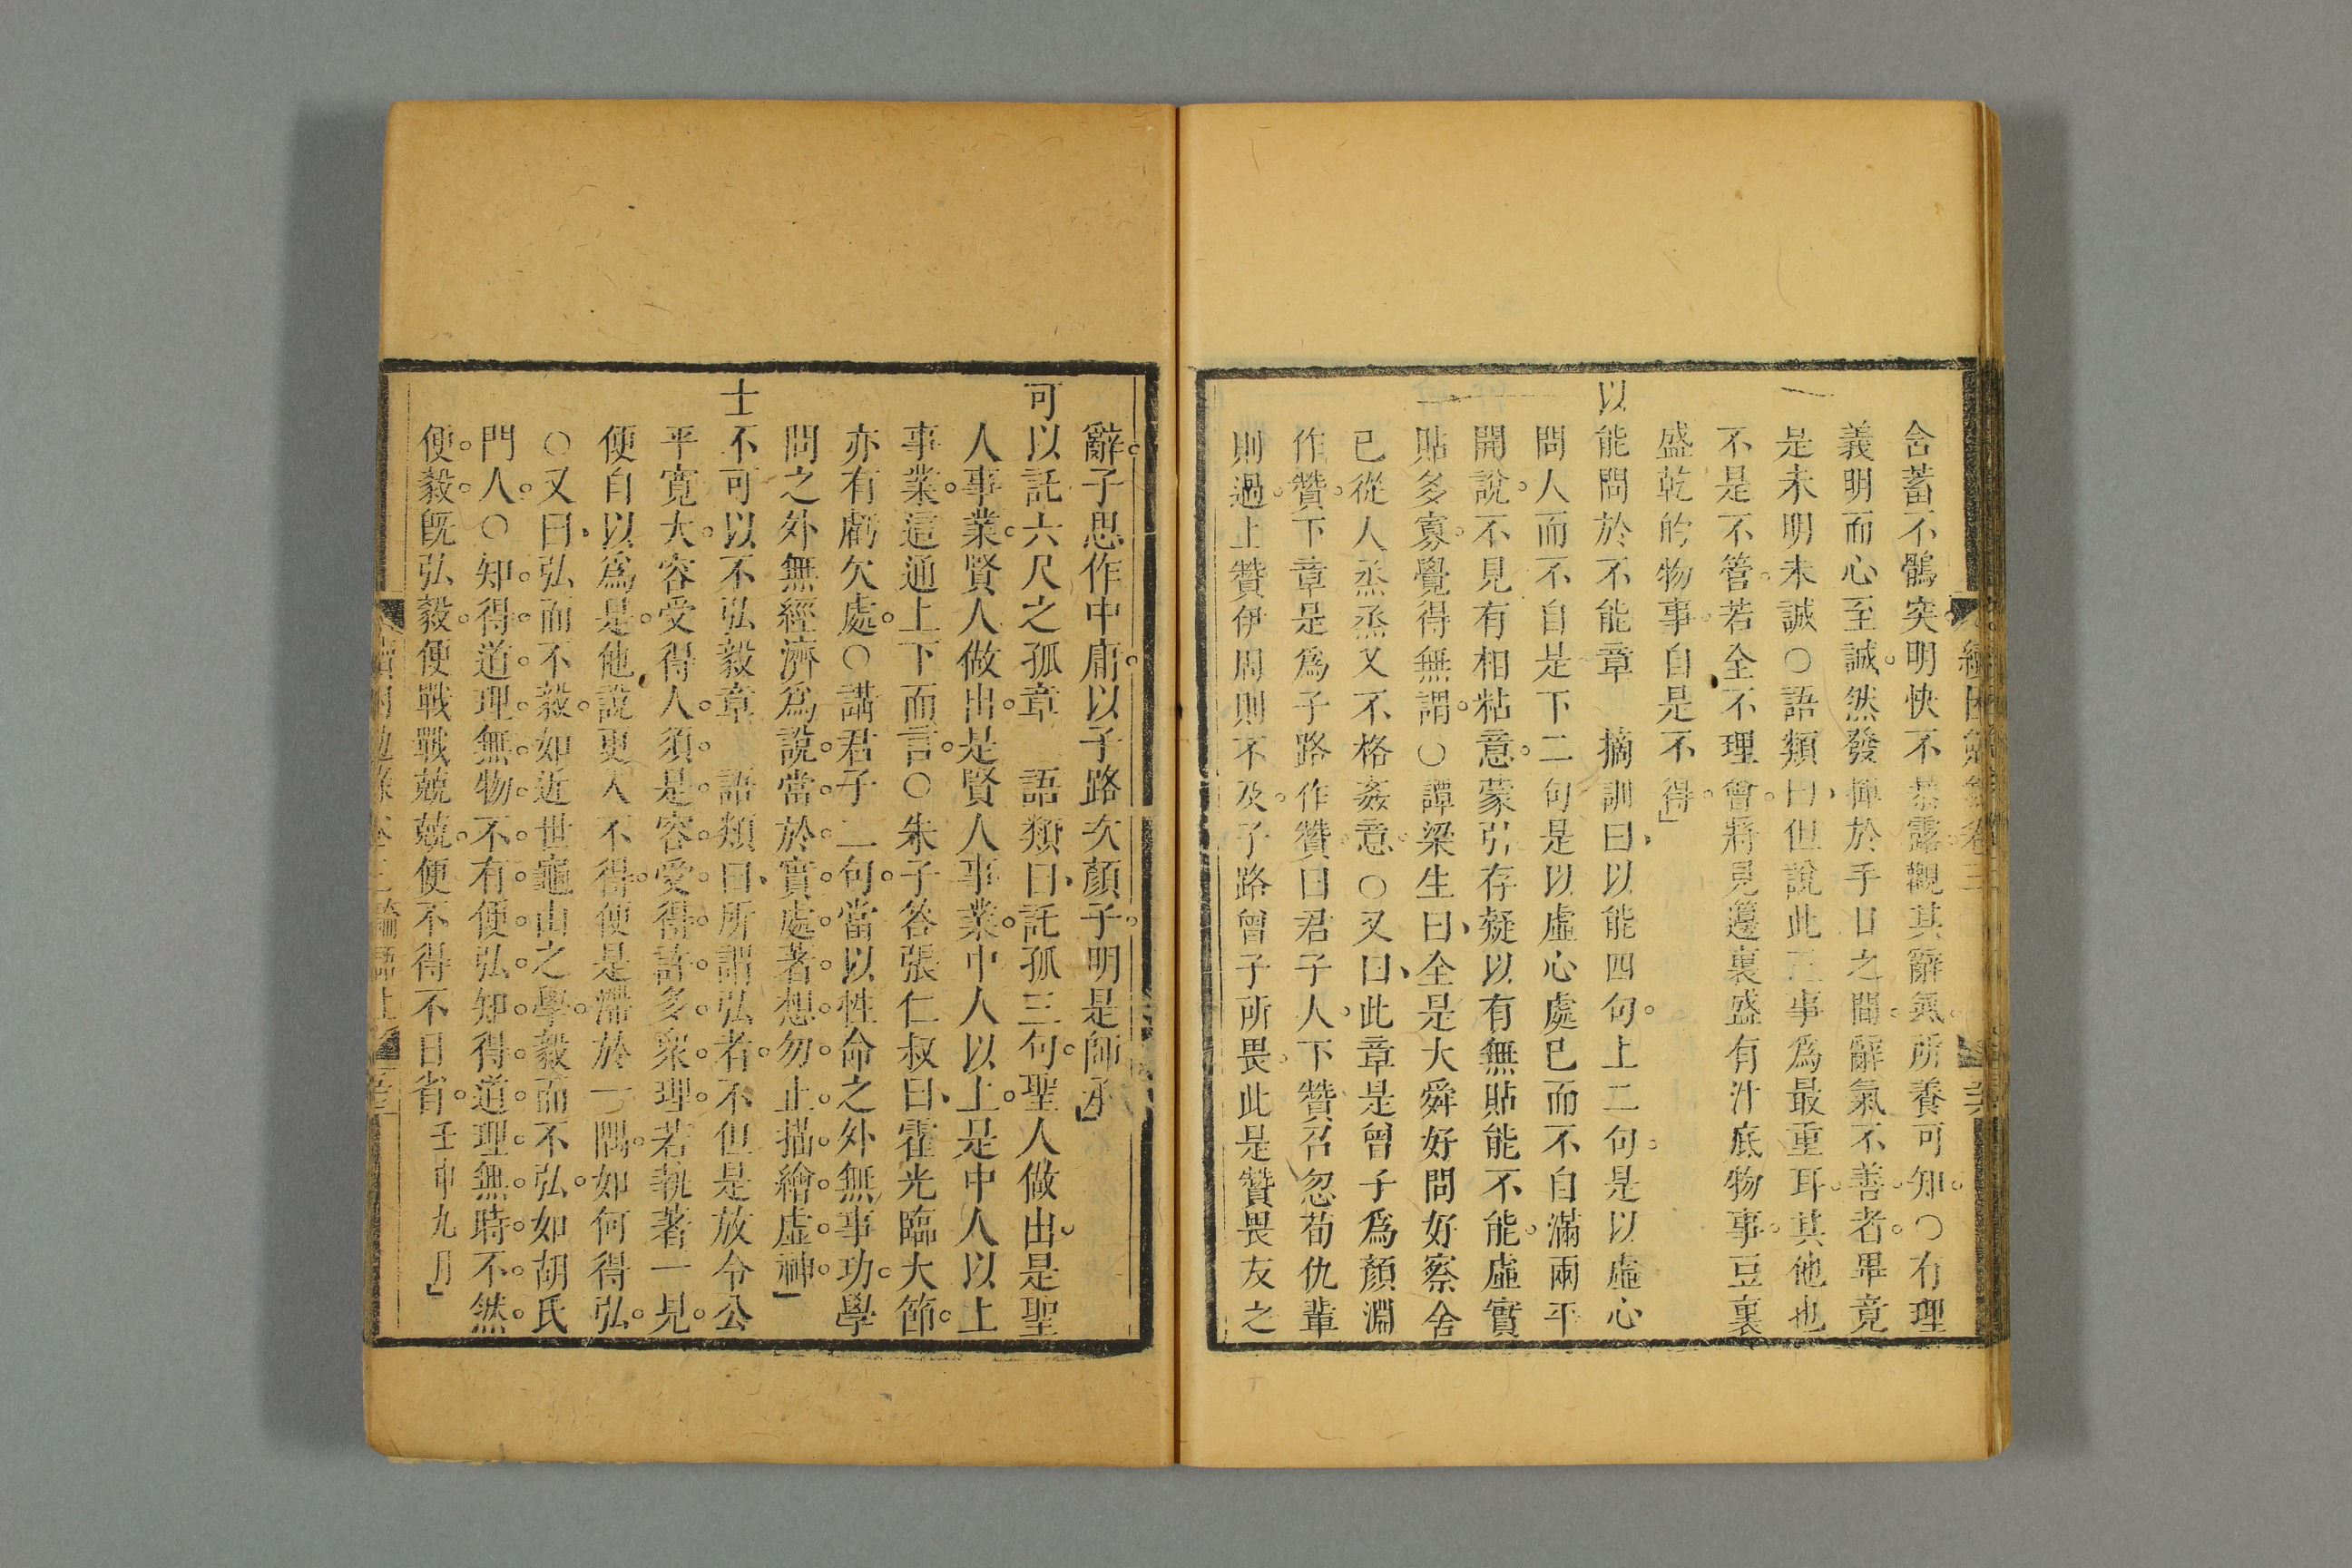 舍蓄不鶻突明快不暴露觀其辭氣所養可知○有理
義明而心至誠然發揮於手口之間辭氣不善者畢竟
是未明未誠○語類曰但說此三事爲最重耳其他也
不是不管若全不理會將見籩裏盛有汁底物事豆裏
盛乾的物事自是不得
以能問於不能章　摘訓曰以能四句上二句是以虛心
問人而不自是下二句是以虛心處已而不自滿兩平
開說不見有相粘意蒙引存疑以有無貼能不能虛實
貼多寡覺得無謂○譚梁生曰全是大舜好問好察舍
已從人烝烝又不格姦意○又曰此章是曾子爲顏淵
作贊下章是爲子路作贊曰君子人下贊召忽荀仇輩
則過上贊伊周則不及子路曾子所畏此是贊畏友之
辭子思作中庸以子路次顏子明是師承
可以託六尺之孤章　語類曰託孤三句聖人做出是聖
人事業賢人做出是賢人事業中人以上是中人以上
事業這通上下而言○朱子答張仁叔曰霍光臨大節
亦有虧欠處○講君子二句當以性命之外無事功學
問之外無經濟爲說當於實處著想勿止描繪虛神
士不可以不弘毅章　語類曰所謂弘者不但是放令公
平寬大容受得人須是容受得許多衆理若執著一見
便自以爲是他說更入不得便是滯於一隅如何得弘
○又曰弘而不毅如近世龜山之學毅而不弘如胡氏
門人○知得道理無物不有便弘知得道理無時不然
便毅旣弘毅便戰戰兢兢便不得不日省壬申九月